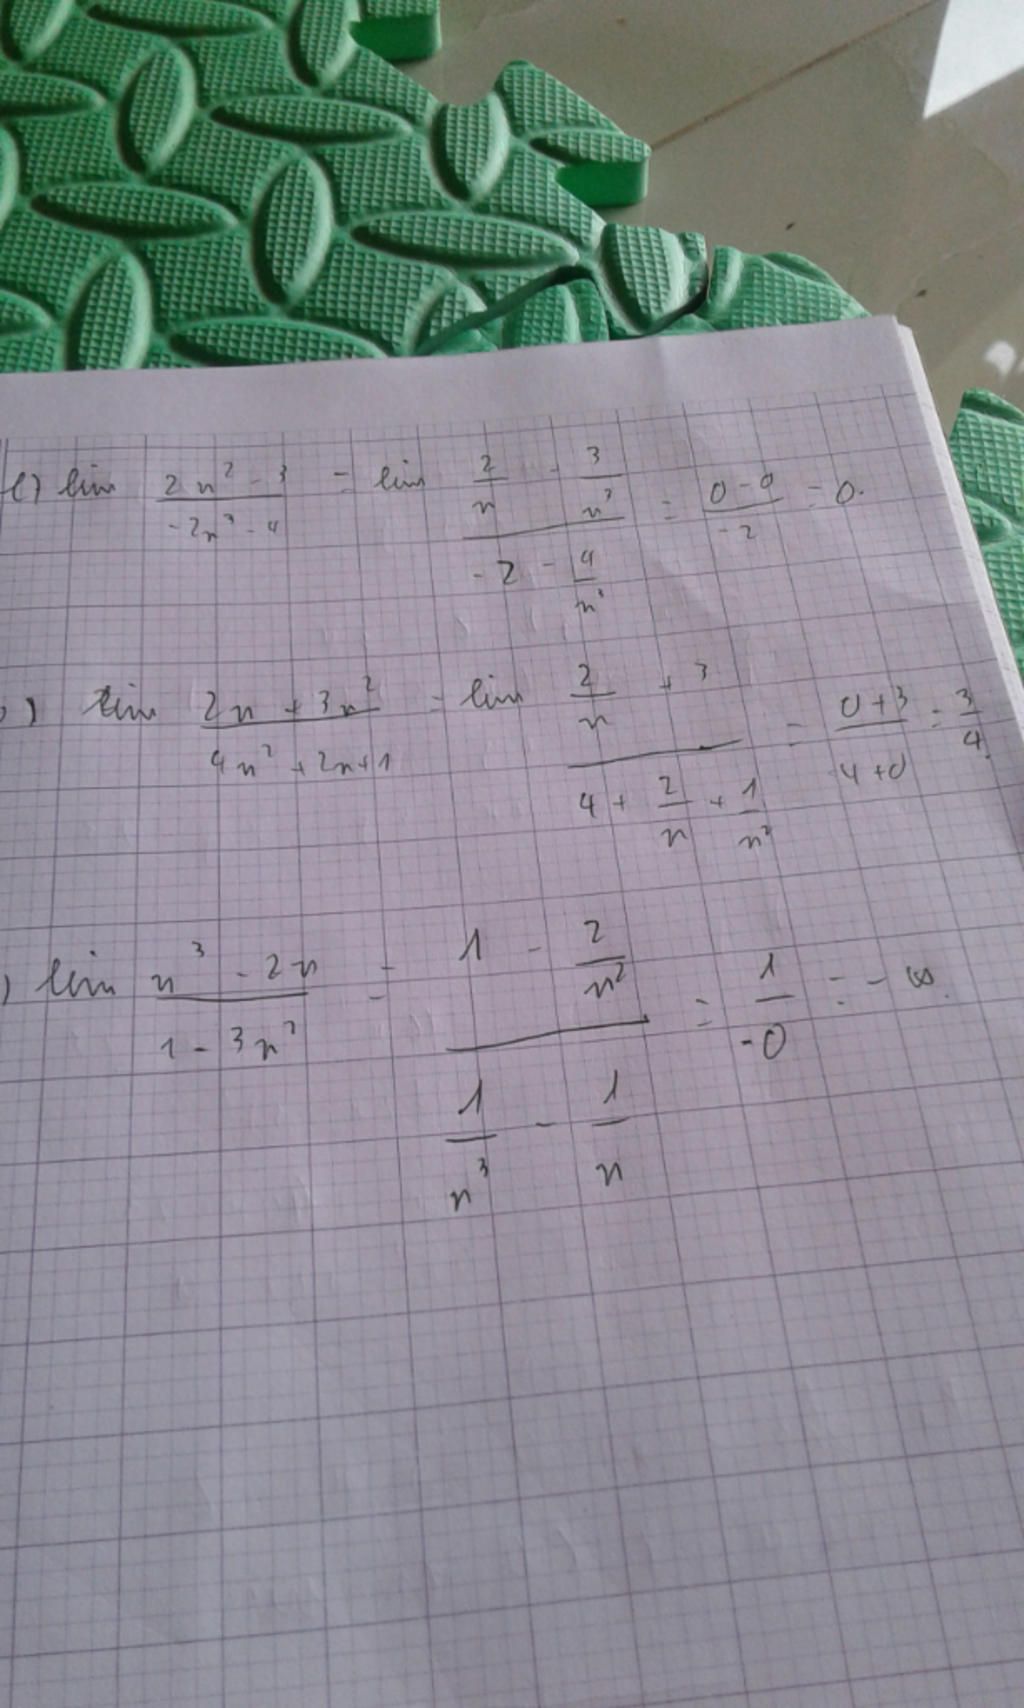 lim 2n² - 3 / -2n³ - 4 = lim 2/n - 3/n³ / -2 - 4/n³ = 0-0 / -2 = 0.
) lim 2n + 3n² / 4n² + 2n + 1 = lim 2/n + 3 / 4 + 2/n + 1/n² = 0+3 / 4+0 = 3/4.
) lim n³ - 2n / 1 - 3n² = 1 - 2/n² / 1/n³ - 1/n = 1 / -0 = -∞.